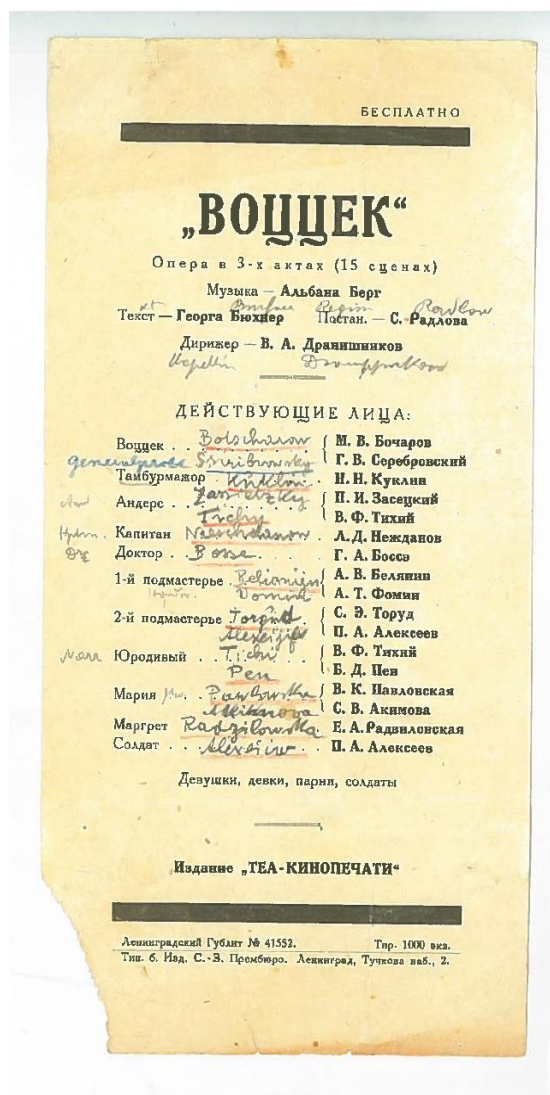 БЕСПЛАТНО
„ВОЦЦЕК“
Опера в 3-х актах (15 сценах)
Музыка — Альбана Берг
Текст — Георга Бюхнер Постан. — С. Радлова
Radlow
Дирижер — В. А. Дранишников
ДЕЙСТВУЮЩИЕ ЛИЦА:
Воццек . . Botscharow { М. В. Бочаров
generalprobe Г. В. Серебровский
Тамбурмажор Kuklin И. Н. Куклин
Андерс . . . { П. И. Засецкий
Tichy В. Ф. Тихий
Капитан Л. Д. Нежданов
Dr Доктор . . Bosse . . Г. А. Боссэ
1-й подмастерье . { А. В. Белянин
А. Т. Фомин
2-й подмастерье Torgud { С. Э. Торуд
П. А. Алексеев
Narr Юродивый . . Tichi { В. Ф. Тихий
Pen Б. Д. Пен
Мария . . Pawlowska { В. К. Павловская
Akimova С. В. Акимова
Маргрет Radzilowska Е. А. Радвиловская
Солдат . . . П. А. Алексеев
Девушки, девки, парни, солдаты
Издание „ТЕА-КИНОПЕЧАТИ“
Ленинградский Гублит № 41552. Тир. 1000 экз.
Тип. б. Изд. С.-З. Промбюро. Ленинград, Тучкова наб., 2.